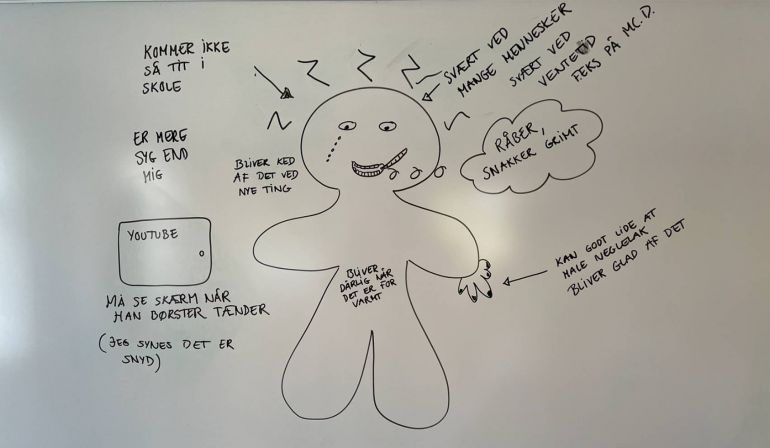 KOMMER IKKE
SÅ TIT I
SKOLE
SVÆRT VED
MANGE MENNESKER
SVÆRT VED
VENTETID
F.EKS PÅ MC.D.
RÅBER,
SNAKKER GRIMT
ER MERE
SYG END
MIG
BLIVER KED
AF DET VED
NYE TING
YOUTUBE
MÅ SE SKÆRM NÅR
HAN BØRSTER TÆNDER
(JEG SYNES DET ER
SNYD)
BLIVER
DÅRLIG NÅR
DET ER FOR
VARMT
KAN GODT LIDE AT
MALE NEGLELAK
BLIVER GLAD AF DET